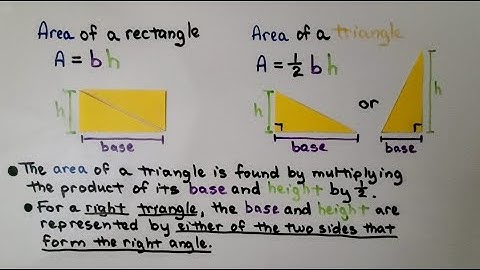 Area of a rectangle
A = bh
h
base
Area of a triangle
A = 1/2 bh
h
base
or
h
base
• The area of a triangle is found by multiplying
the product of its base and height by 1/2.
• For a right triangle, the base and height are
represented by either of the two sides that
form the right angle.